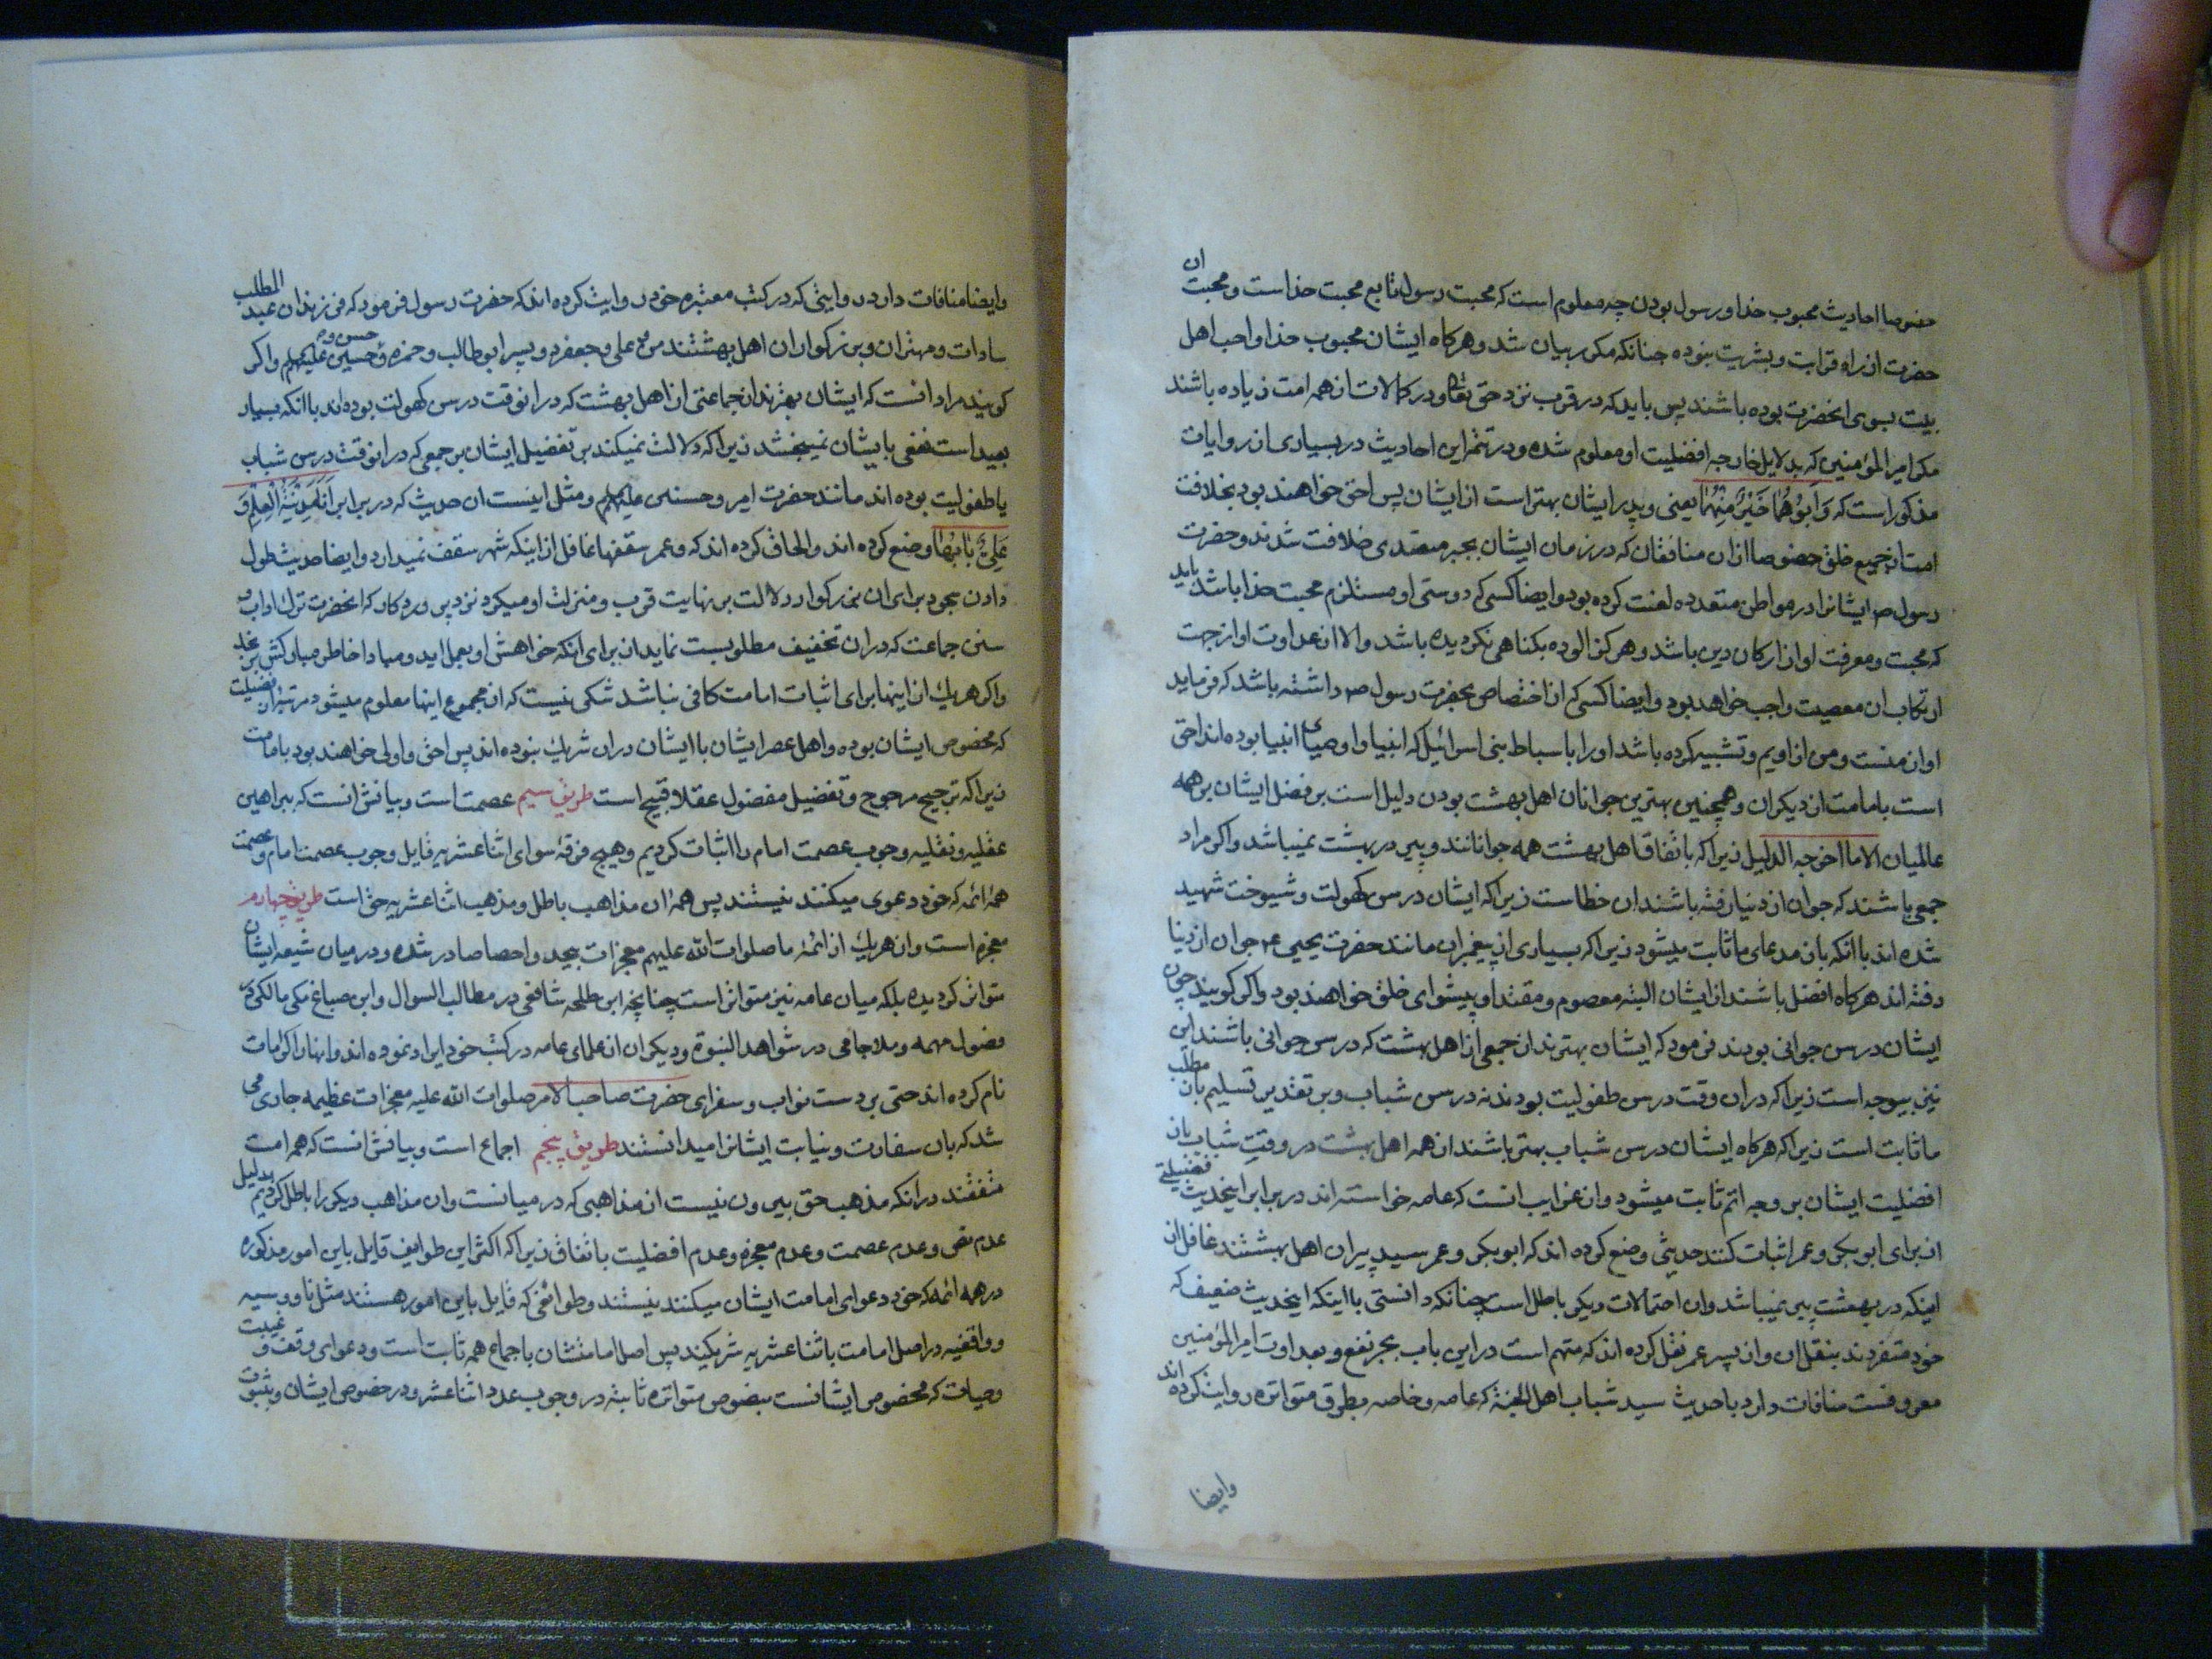 خصوصا احادیث محبوب خدا و رسول بودن چه معلوم است که محبت رسول تابع محبت خداست و محبت ان
حضرت از راه قرابت و بشریت نبوده چنانکه مکرر بیان شد و هرکاه ایشان محبوب خدا و احب اهل
بیت بسوی انحضرت بوده باشند پس باید که در قرب نزد حق تعالی و در کمالات از همه امت زیاده باشند
مکر امیر المؤمنین که بدلایل خارجه افضلیت او معلوم شده و در تتمه این احادیث در بسیاری از روایات
مذکور است که وَاَبُوهُمَا خَیْرٌ مِنْهُمَا یعنی و پدر ایشان بهتر است از ایشان پس احق خواهند بود بخلافت
امت از جمیع خلق خصوصا از ان منافقان که در زمان ایشان بجبر متصدی خلافت شدند و حضرت
رسول ص ایشانرا در مواطن متعدده لعنت کرده بود و ایضا کسی که دوستی او مستلزم محبت خدا باشد باید
که محبت و معرفت او از ارکان دین باشد و هرکز الوده بکناهی نکردیده باشد و الا از عداوت او از جهت
ارتکاب ان معصیت واجب خواهد بود و ایضا کسی که از اختصاص بحضرت رسول ص داشته باشد که فرماید
او از منست و من از اویم و تشبیه کرده باشد او را باسباط بنی اسرائیل که انبیا و اوصیای انبیا بوده اند احق
است بامامت از دیکران و همچنین بهترین جوانان اهل بهشت بودن دلیل است بر فضل ایشان بر همه
عالمیان الا ما اخرجه الدلیل زیرا که باتفاق اهل بهشت همه جوانانند و پیر در بهشت نمیباشد و اکر مراد
جمعی باشند که جوان از دنیا رفته باشند ان خطاست زیرا که ایشان در سن کهولت و شیوخت شهید
شده اند با انکه بان مدعای ما ثابت میشود زیرا که بسیاری از پیغمبران مانند حضرت یحیی ع جوان از دنیا
رفته اند هرکاه افضل باشند از ایشان البته معصوم و مقتدا و پیشوای خلق خواهند بود و اکر کویند چون
ایشان در سن جوانی بودند فرمود که ایشان بهترند از جمعی از اهل بهشت که در سن جوانی باشند این
نیز بیوجه است زیرا که در ان وقت در سن طفولیت بودند نه در سن شباب و بر تقدیر تسلیم بان مطلب
ما ثابت است زیرا که هرکاه ایشان در سن شباب بهتر باشند از همه اهل بهشت در وقت شباب بان
افضلیت ایشان بر وجه اتم ثابت میشود و از غرایب انست که عامه خواسته اند در برابر اینحدیث فضیلتی
از برای ابو بکر و عمر اثبات کنند حدیثی وضع کرده اند که ابو بکر و عمر سید پیران اهل بهشتند غافل از
اینکه در بهشت پیر نمیباشد و ان احتمالات دیکر باطل است چنانکه دانستی با اینکه اینحدیث ضعیف که
خود متفردند بنقل ان و از پسر عمر نقل کرده اند که متهم است در این باب بجر نفع و بعداوت امیر المؤمنین
معروفست منافات دارد با حدیث سید شباب اهل الجنة که عامه و خاصه بطرق متواتره روایت کرده اند
وایضا
وایضا منافات دارد روایتی که در کتب معتبره خود روایت کرده اند که حضرت رسول فرمود که فرزندان عبد المطلب
سادات و مهتران و بزرکواران اهل بهشتند من و علی و جعفر دو پسر ابو طالب و حمزه و حسن و حسین علیهم و اکر
کویند مراد انست که ایشان بهترند از جماعتی از اهل بهشت که در انوقت در سن کهولت بوده اند با انکه بسیار
بعید است نفعی بایشان نمیبخشد زیرا که دلالت نمیکند بر تفضیل ایشان بر جمعی که در انوقت در سن شباب
یا طفولیت بوده اند مانند حضرت امیر و حسنین علیهم و مثل اینست ان حدیث که در برابر اَنَا مَدِینَةُ الْعِلْمِ وَ
عَلِیٌّ بَابُهَا وضع کرده اند و الحاق کرده اند که و عمر سقفها غافل از اینکه شهر سقف نمیدارد و ایضا حدیث طول
دادن سجود برای ان بزرکوار دلالت بر نهایت قرب و منزلت او میکرد نزد پروردکار که انحضرت ترک اداب و
سنن جماعت که در ان تخفیف مطلوبست نماید از برای انکه خواهش او بعمل اید و مبادا خاطر مبارکش برنجد
و اکر هریک از اینها برای اثبات امامت کافی نباشد شکی نیست که از مجموع اینها معلوم میشود مرتبه از فضیلت
که مخصوص ایشان بوده و اهل عصر ایشان با ایشان در ان شریک نبوده اند پس احق و اولی خواهند بود بامامت
زیرا که ترجیح مرجوح و تفضیل مفضول عقلا قبیح است طریق سیم عصمت است و بیانش انست که ببراهین
عقلیه و نقلیه وجوب عصمت امام را اثبات کردیم و هیچ فرقهٔ سوای اثنا عشریه قایل وجوب عصمت امام و عصمت
همهٔ ائمه که خود دعوی میکنند نیستند پس همهٔ ان مذاهب باطل و مذهب اثنا عشریه حق است طریق چهارم
معجزه است و از هریک از ائمهٔ ما صلوات الله علیهم معجزات بیحد و احصا صادر شده و در میان شیعه ایشان
متواتر کردیده بلکه میان عامه نیز متواتر است چنانچه ابن طلحه شافعی در مطالب السؤال و ابن صباغ مکی مالکی در
فصول مهمه و ملا جامی در شواهد النبوة و دیکران از علمای عامه در کتب خود ایراد نموده اند و انها را کرامات
نام کرده اند حتی بر دست نواب و سفرای حضرت صاحب الامر صلوات الله علیه معجزات عظیمه جاری می
شد که بان سفارت و نیابت ایشانرا میدانستند طریق پنجم اجماع است و بیانش انست که همه امت
متفقند در انکه مذهب حق بیرون نیست از مذاهبی که در میانست و ان مذاهب دیکر را باطل کردیم بدلیل
عدم نص و عدم عصمت و عدم معجزه و عدم افضلیت باتفاق زیرا که اکثر این طوایف قایل باین امور مذکوره
در همه ائمه که خود دعوای امامت ایشان میکنند نیستند و طوائفی که قایل باین امور هستند مثل ناووسیه
و واقفیه در اصل امامت با اثنا عشریه شریکند پس اصل امامتشان باجماع همه ثابت است و دعوای وقف و غیبت
وحیات که مخصوص ایشانست بنصوص متواتره ثابته در وجوب عدد اثنا عشر و در خصوص ایشان و بثبوت